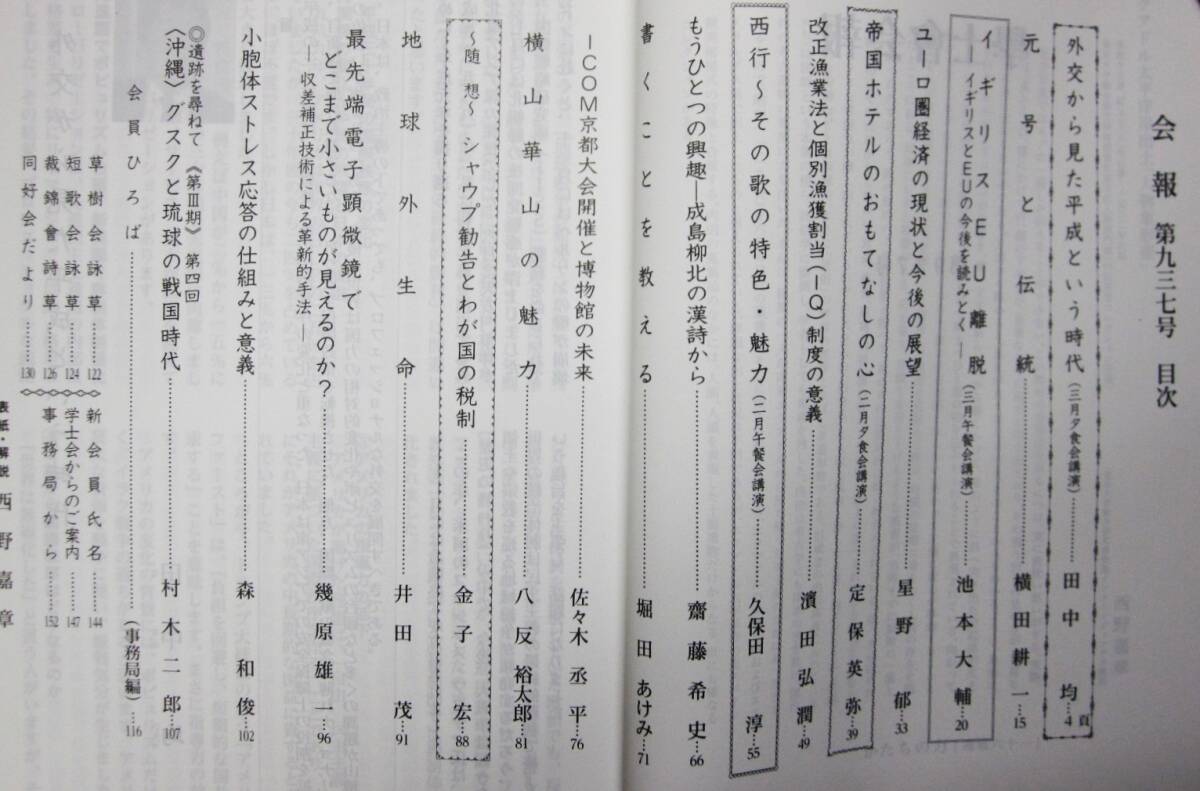 会報 第九三七号 目次
外交から見た平成という時代(三月夕食会講演)…………田中 均…4頁
元号と伝統…………横田耕一…15
イギリスEU離脱
―イギリスとEUの今後を読みとく―(三月午餐会講演)…………池本大輔…20
ユーロ圏経済の現状と今後の展望…………星野 郁…33
帝国ホテルのおもてなしの心(二月夕食会講演)…………定保英弥…39
改正漁業法と個別漁獲割当(IQ)制度の意義…………濱田弘潤…49
西行～その歌の特色・魅力(二月午餐会講演)…………久保田 淳…55
もうひとつの興趣―成島柳北の漢詩から…………齋藤希史…66
書くことを教える…………堀田あけみ…71
ICOM京都大会開催と博物館の未来…………佐々木丞平…76
横山華山の魅力…………八反裕太郎…81
～随想～ シャウプ勧告とわが国の税制…………金子 宏…88
地球外生命…………井田 茂…91
最先端電子顕微鏡で
どこまで小さいものが見えるのか?…………幾原雄一…96
―収差補正技術による革新的手法―
小胞体ストレス応答の仕組みと意義…………森 和俊…102
◎遺跡を尋ねて《第Ⅲ期》第四回
〈沖縄〉グスクと琉球の戦国時代…………村木二郎…107
会員ひろば…………(事務局編)…116
草樹会詠草…………122
短歌会詠草…………124
裁錦會詩草…………126
同好会だより…………130
新会員氏名…………144
学士会からのご案内…………147
事務局から…………152
表紙・解説 西野嘉章